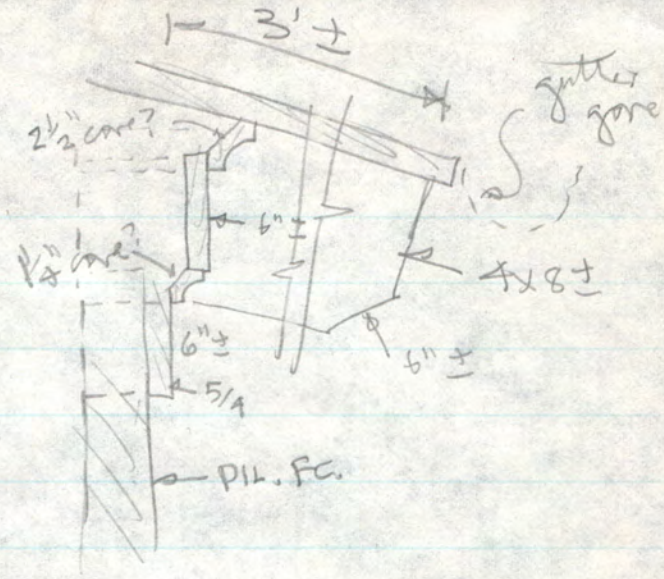 3' ±
gutter
gone
2 1/2" cove?
6" ±
1 1/4" cove?
4x8 ±
6" ±
6" ±
5/4
PIL. FC.